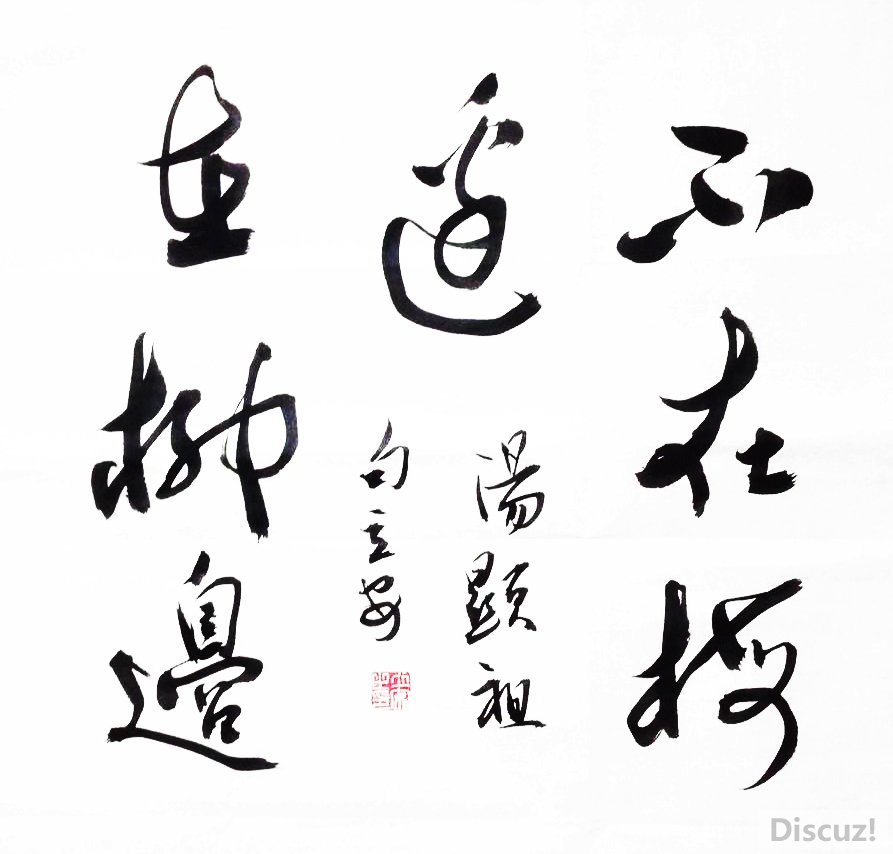 不在梅
邊
在柳邊
湯顯祖
句立安
Discuz!